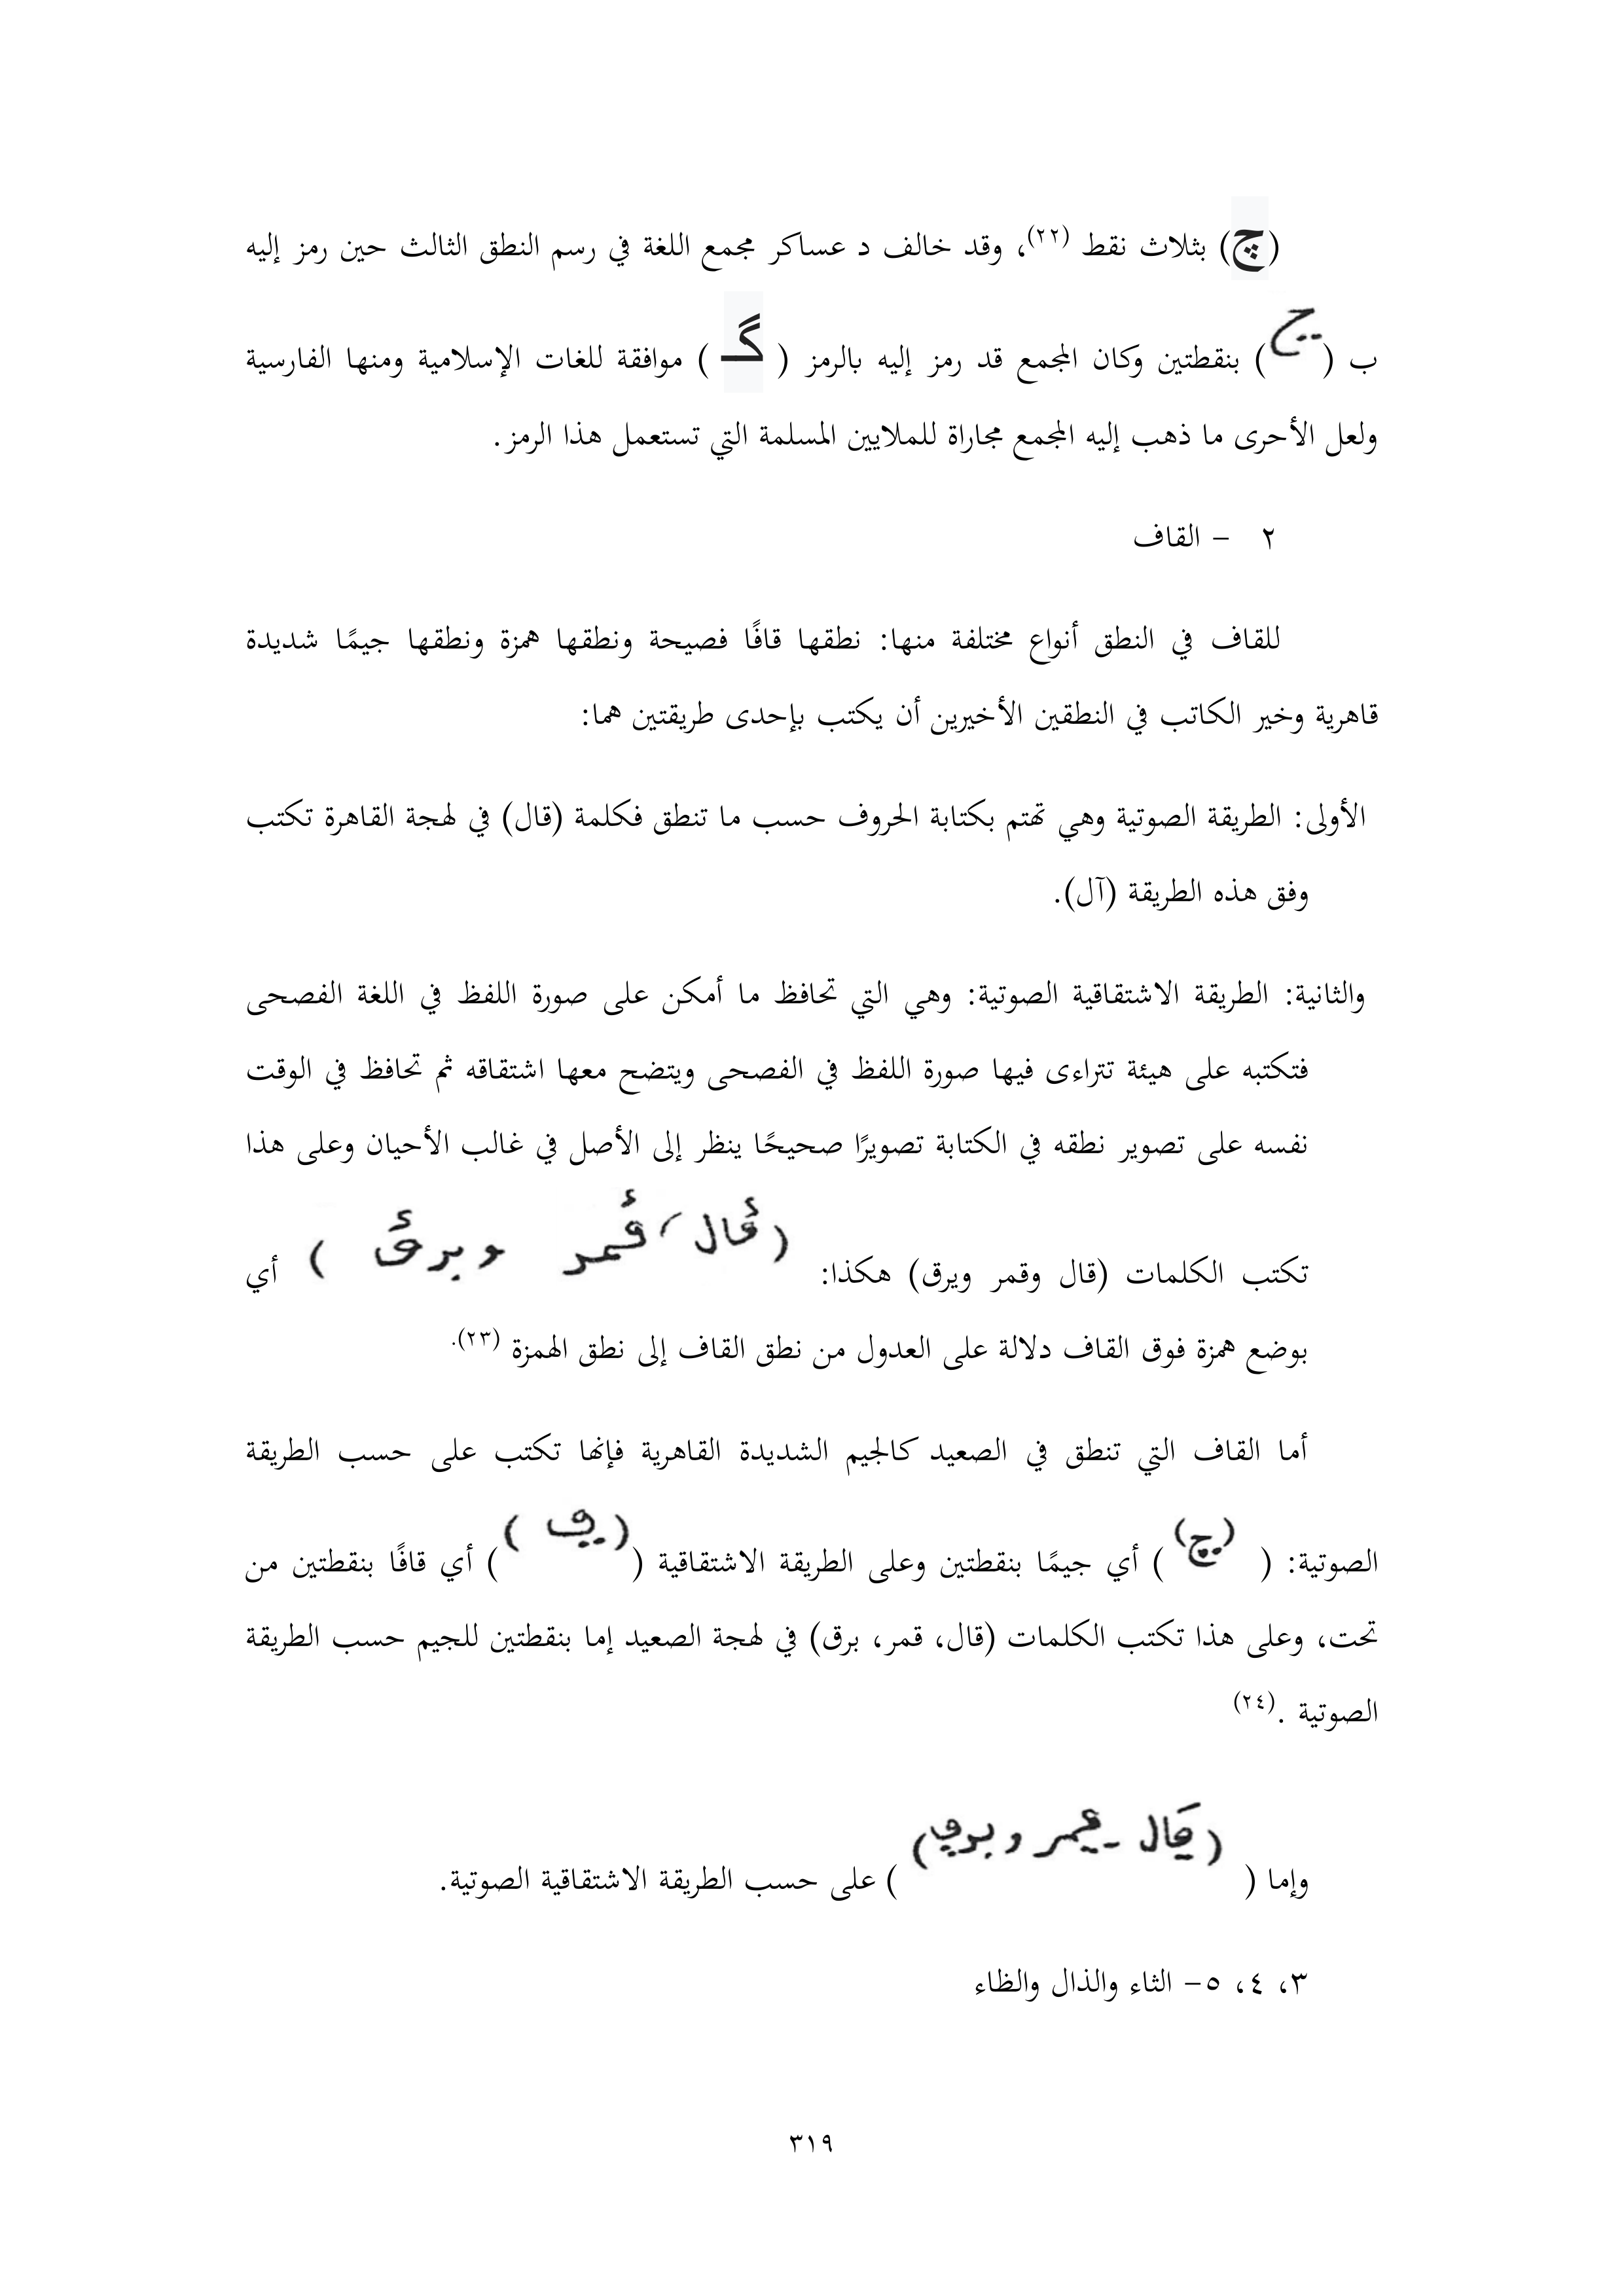 (چ) بثلاث نقط (٢٢)، وقد خالف د عساكر مجمع اللغة في رسم النطق الثالث حين رمز إليه
ب ( ) بنقطتين وكان المجمع قد رمز إليه بالرمز ( گـ ) موافقة للغات الإسلامية ومنها الفارسية
ولعل الأحرى ما ذهب إليه المجمع مجاراة للملايين المسلمة التي تستعمل هذا الرمز.
٢ – القاف
للقاف في النطق أنواع مختلفة منها: نطقها قافًا فصيحة ونطقها همزة ونطقها جيمًا شديدة
قاهرية وخير الكاتب في النطقين الأخيرين أن يكتب بإحدى طريقتين هما:
الأولى: الطريقة الصوتية وهي تهتم بكتابة الحروف حسب ما تنطق فكلمة (قال) في لهجة القاهرة تكتب
وفق هذه الطريقة (آل).
والثانية: الطريقة الاشتقاقية الصوتية: وهي التي تحافظ ما أمكن على صورة اللفظ في اللغة الفصحى
فتكتبه على هيئة تتراءى فيها صورة اللفظ في الفصحى ويتضح معها اشتقاقه ثم تحافظ في الوقت
نفسه على تصوير نطقه في الكتابة تصويرًا صحيحًا ينظر إلى الأصل في غالب الأحيان وعلى هذا
تكتب الكلمات (قال وقمر ويرق) هكذا: ( ) أي
بوضع همزة فوق القاف دلالة على العدول من نطق القاف إلى نطق الهمزة (٢٣).
أما القاف التي تنطق في الصعيد كالجيم الشديدة القاهرية فإنها تكتب على حسب الطريقة
الصوتية: ( ) أي جيمًا بنقطتين وعلى الطريقة الاشتقاقية ( ) أي قافًا بنقطتين من
تحت، وعلى هذا تكتب الكلمات (قال، قمر، برق) في لهجة الصعيد إما بنقطتين للجيم حسب الطريقة
الصوتية .(٢٤)
وإما ( ) على حسب الطريقة الاشتقاقية الصوتية.
٣، ٤، ٥– الثاء والذال والظاء
٣١٩